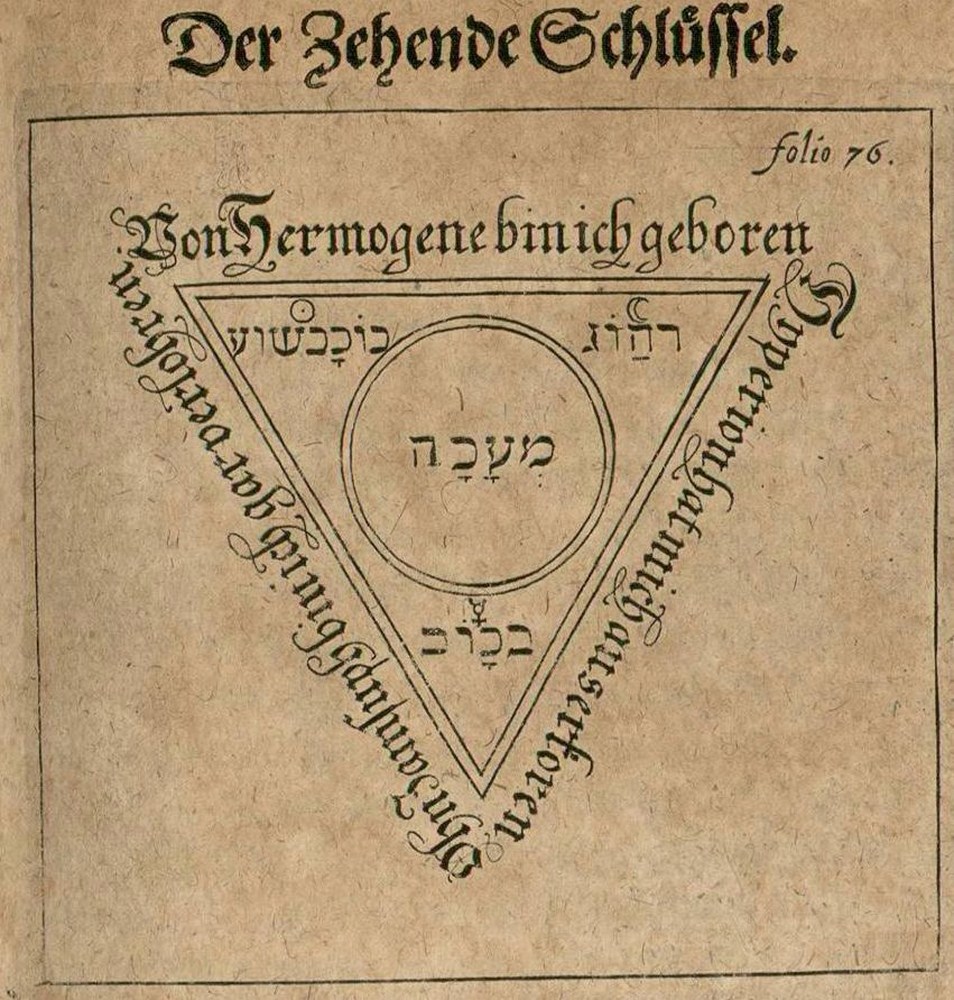 Der Zehende Schlüssel.
folio 76.
Von Hermogene bin ich geboren
Hyperion hat mich auserkoren
Ohn Jamsuph bin ich gar verlohren
מִעָכָה